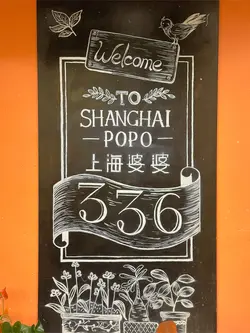 Welcome
TO
SHANGHAI
POPO
上海婆婆
336